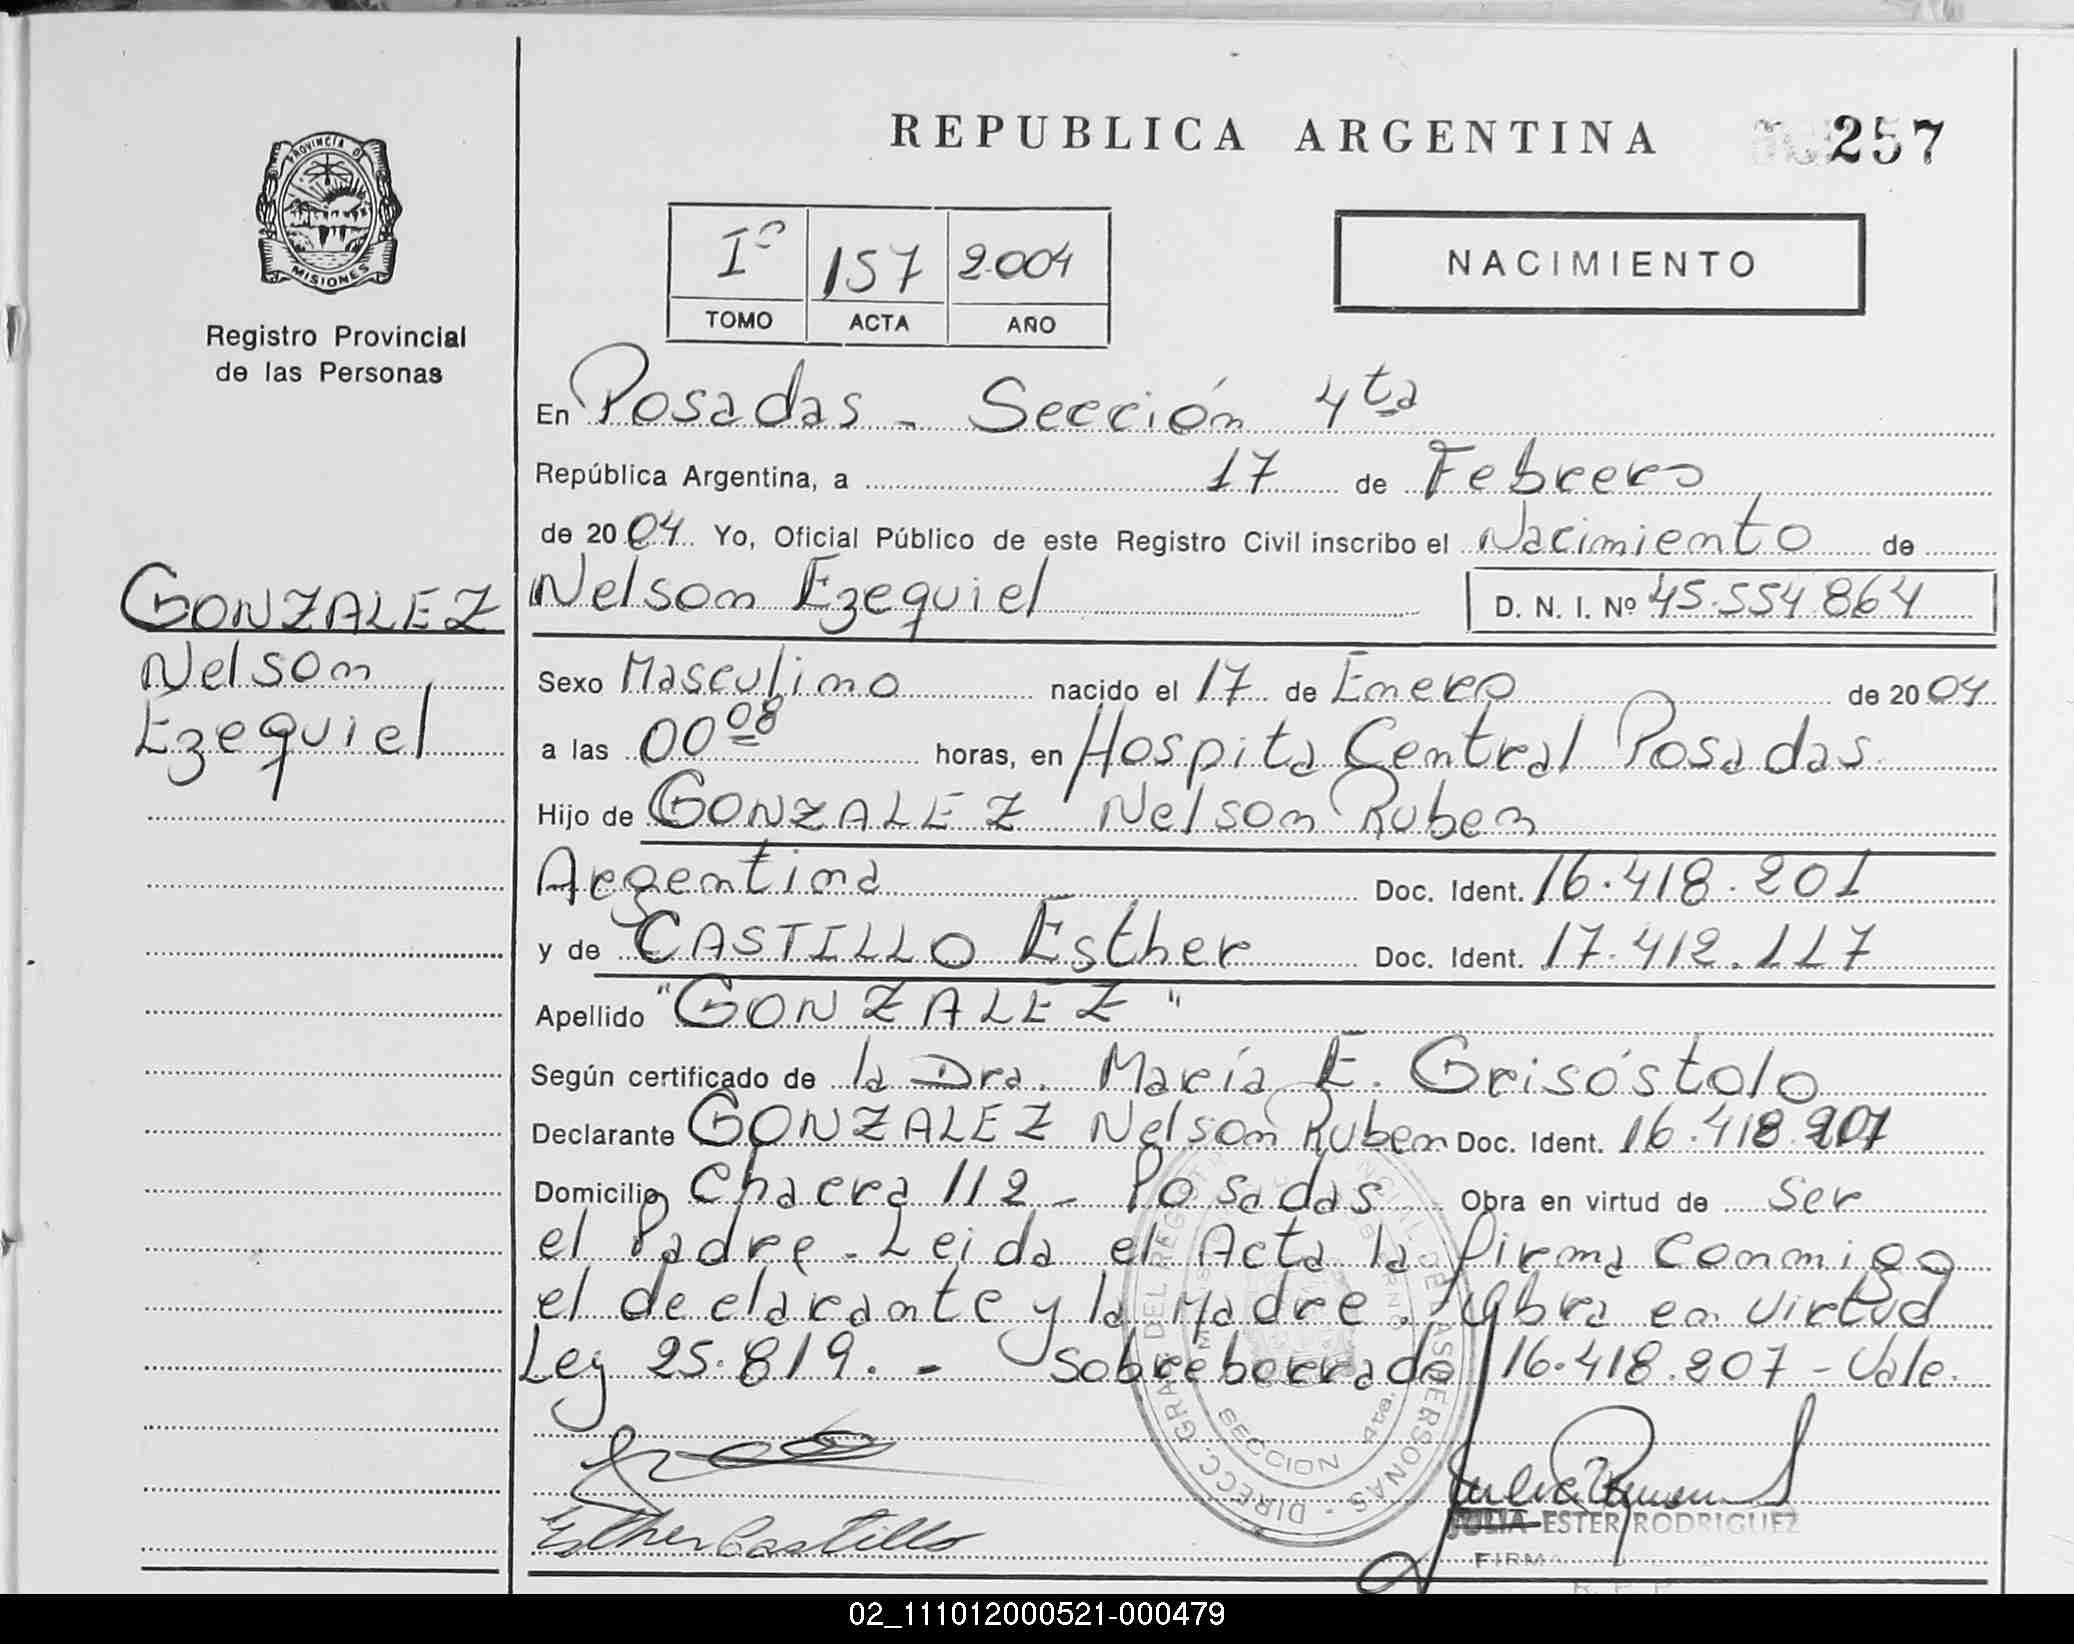 REPUBLICA ARGENTINA 257
PROVINCIA DE
MISIONES
Registro Provincial
de las Personas
Iº 157 2004
TOMO ACTA AÑO
NACIMIENTO
En Posadas - Sección 4ta
República Argentina, a 17 de Febrero
de 2004 Yo, Oficial Público de este Registro Civil inscribo el Nacimiento de
GONZALEZ
Nelson
Ezequiel
Nelson Ezequiel D. N. I. Nº 45.554.864
Sexo Masculino nacido el 17 de Enero de 2004
a las 00 08 horas, en Hospita Central Posadas.
Hijo de GONZALEZ Nelson Ruben
Argentina Doc. Ident. 16.418.201
y de CASTILLO Esther Doc. Ident. 17.412.117
Apellido "GONZALEZ"
Según certificado de la Dra. María E. Grisóstolo
Declarante GONZALEZ Nelson Ruben Doc. Ident. 16.418.207
Domicilio Chacra 112 - Posadas Obra en virtud de ser
el Padre - Leida el Acta la firma conmigo
el declarante y la Madre. Obra en virtud
Ley 25.819. - Sobreborrado 16.418.207 - Vale.
Esther Castillo
JULIA ESTER RODRIGUEZ
SECCION 4ta.
02_111012000521-000479